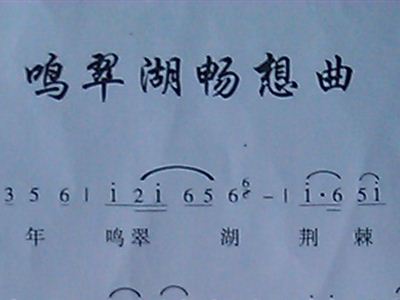 鸣翠湖畅想曲
3 5 6 | i 2 i 6 5 6 6 - | i · 6 5 i
年 鸣翠 湖 荆棘